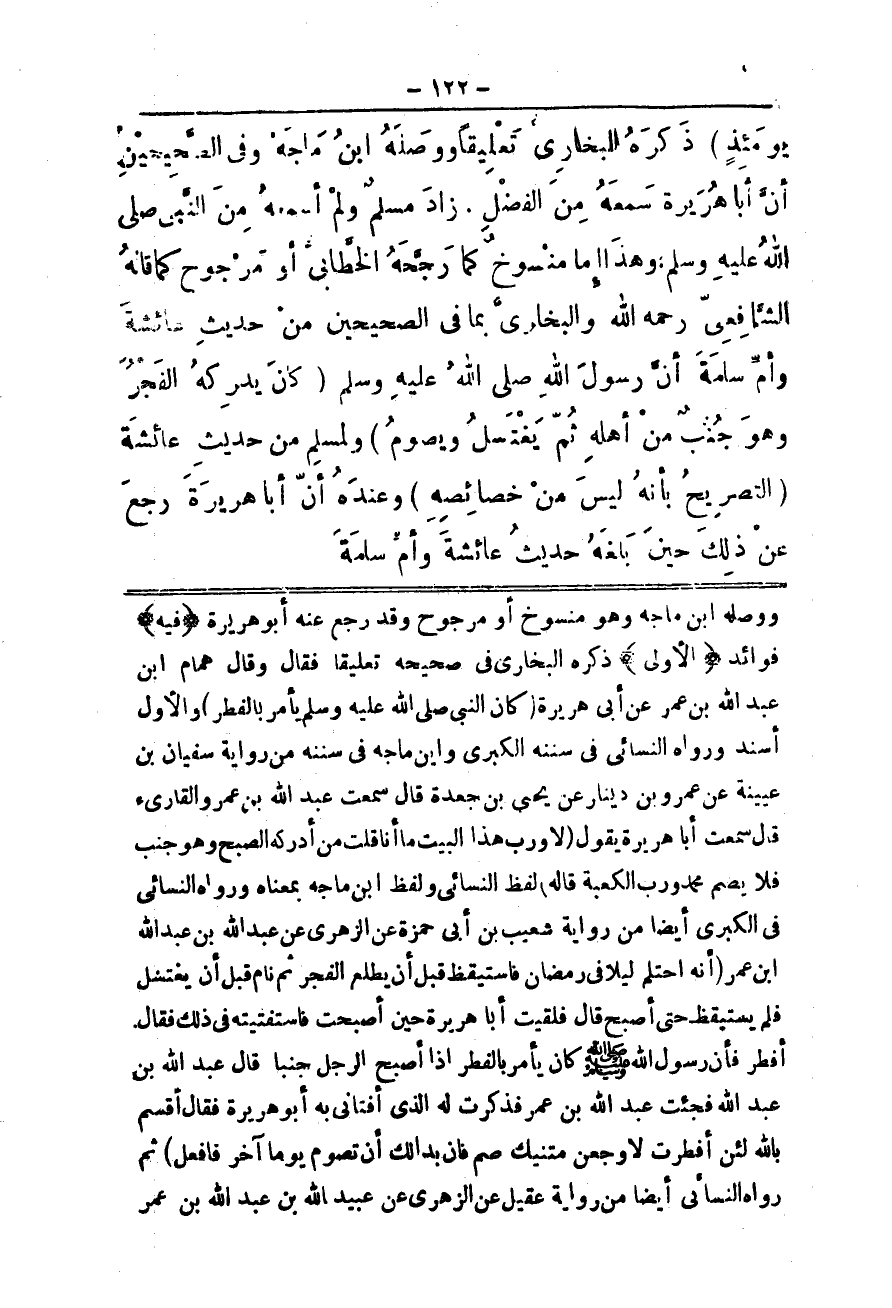 - ١٢٢ -
يومَئِذٍ ) ذَكرَهُ البخارىُّ تَعْلِيقاً ووصَلَهُ ابنُ مَاجَهْ وفى الصَّحِيحَيْنِ
أنَّ أباهُرَيرة سَمعَهُ مِنَ الفَضْلِ . زادَ مسلمٌ ولمْ أسمعهُ مِنَ النَّبى صلى
اللهُ عليهِ وسلم؛ وهذا إِما منْسوخٌ كما رَجَّحَهُ الخطَّابىُّ أو مَرْجوح كما قالهُ
الشَّافِعىّ رحمه الله والبخارىُّ بما فى الصحيحين منْ حديثِ عائشةَ
وأمِّ سلمَةَ أنَّ رسولَ اللهِ صلى اللهُ عليهِ وسلم ( كانَ يدرِكهُ الفَجْرُ
وهوَ جُنُبٌ منْ أهلهِ ثُمّ يَغْتَسلُ ويصومُ ) ولمسلمٍ من حديثِ عائشةَ
( التصرِيحُ بأنهُ ليسَ منْ خصائصِهِ ) وعندَهُ أنّ أبا هريرَةَ رجعَ
عنْ ذلِكَ حينَ بَلغَهُ حديثُ عائشةَ وأمِّ سلمَةَ
ووصله ابن ماجه وهو منسوخ أو مرجوح وقد رجع عنه أبوهريرة ﴿فيه﴾
فوائد ﴿ الأولى ﴾ ذكره البخارى فى صحيحه تعليقا فقال وقال همام ابن
عبد الله بن عمر عن أبى هريرة (كان النبى صلى الله عليه وسلم يأمر بالفطر) والأول
أسند ورواه النسائى فى سننه الكبرى وابن ماجه فى سننه من رواية سفيان بن
عيينة عن عمرو بن دينار عن يحيى بن جعدة قال سمعت عبد الله بن عمرو القارىء
قال سمعت أبا هريرة يقول (لا ورب هذا البيت ما أنا قلت من أدركه الصبح وهو جنب
فلا يصم محمد ورب الكعبة قاله) لفظ النسائى ولفظ ابن ماجه بمعناه ورواه النسائى
فى الكبرى أيضا من رواية شعيب بن أبى حمزة عن الزهرى عن عبدالله بن عبدالله
ابن عمر (أنه احتلم ليلا فى رمضان فاستيقظ قبل أن يطلع الفجر ثم نام قبل أن يغتسل
فلم يستيقظ حتى أصبح قال فلقيت أبا هريرة حين أصبحت فاستفتيته فى ذلك فقال.
أفطر فأن رسول الله ﷺ كان يأمر بالفطر اذا أصبح الرجل جنبا قال عبد الله بن
عبد الله فجئت عبد الله بن عمر فذكرت له الذى أفتانى به أبو هريرة فقال أقسم
بالله لئن أفطرت لاوجعن متنيك صم فان بدالك أن تصوم يوما آخر فافعل) ثم
رواه النسائى أيضا من رواية عقيل عن الزهرى عن عبيد الله بن عبد الله بن عمر